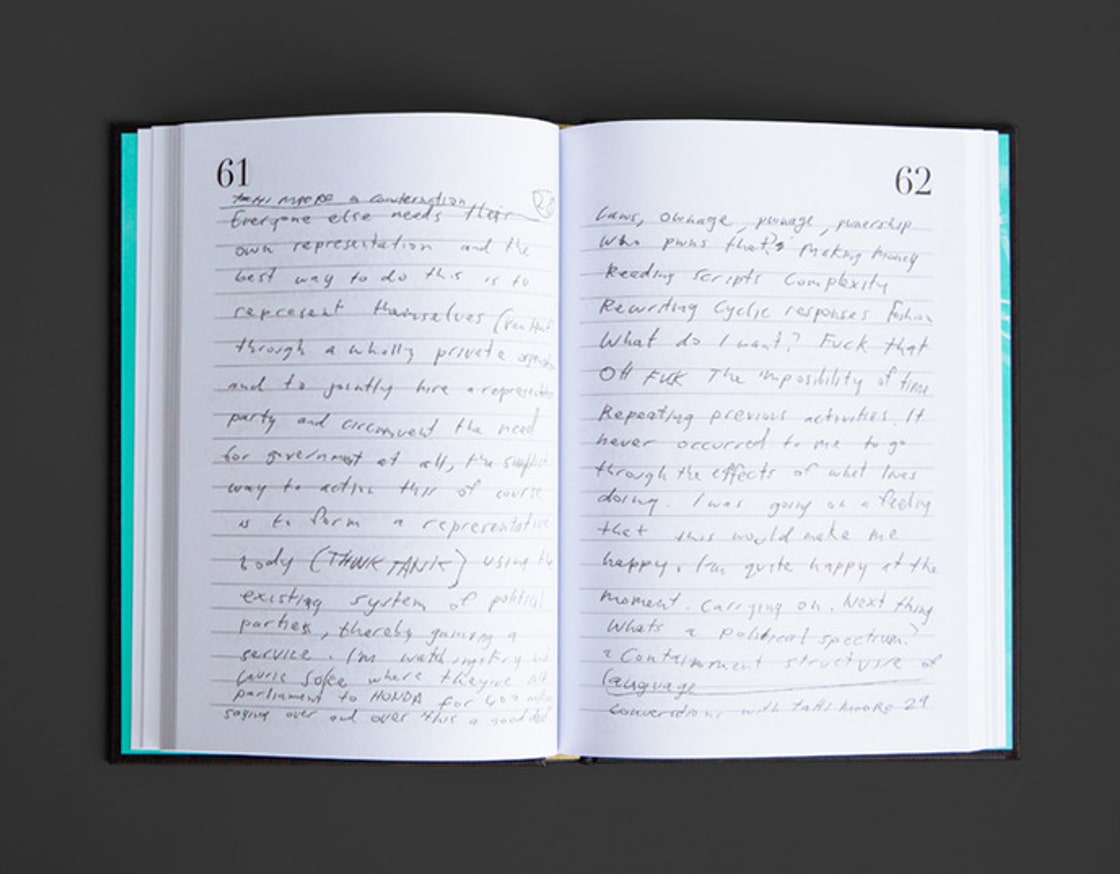 61
TAHI MOORE a conversation
Everyone else needs their
own representation and the
best way to do this is to
represent themselves
through a wholly private
and to jointly hire a
party and circumvent the need
for government at all, the
way to action this of course
is to form a representative
body (THINK TANK) using the
existing system of political
parties, thereby gaming a
service. I'm watching
where theyve
parliament to HONDA for 400
saying over and over this a good deal
62
Laws, ownage, pwnage, pwnership
Who pwns that? Making money
Reading scripts Complexity
Rewriting Cyclic responses
What do I want? Fuck that
OH FUK The imposibility of time
Repeating previous activities. It
never occurred to me to go
through the effects of what I was
doing. I was going on a feeling
that this would make me
happy. I'm quite happy at the
moment. Carrying on. Next thing
Whats a political spectrum?
a Containment structure of
language
Conversations with TAHI MOORE 29